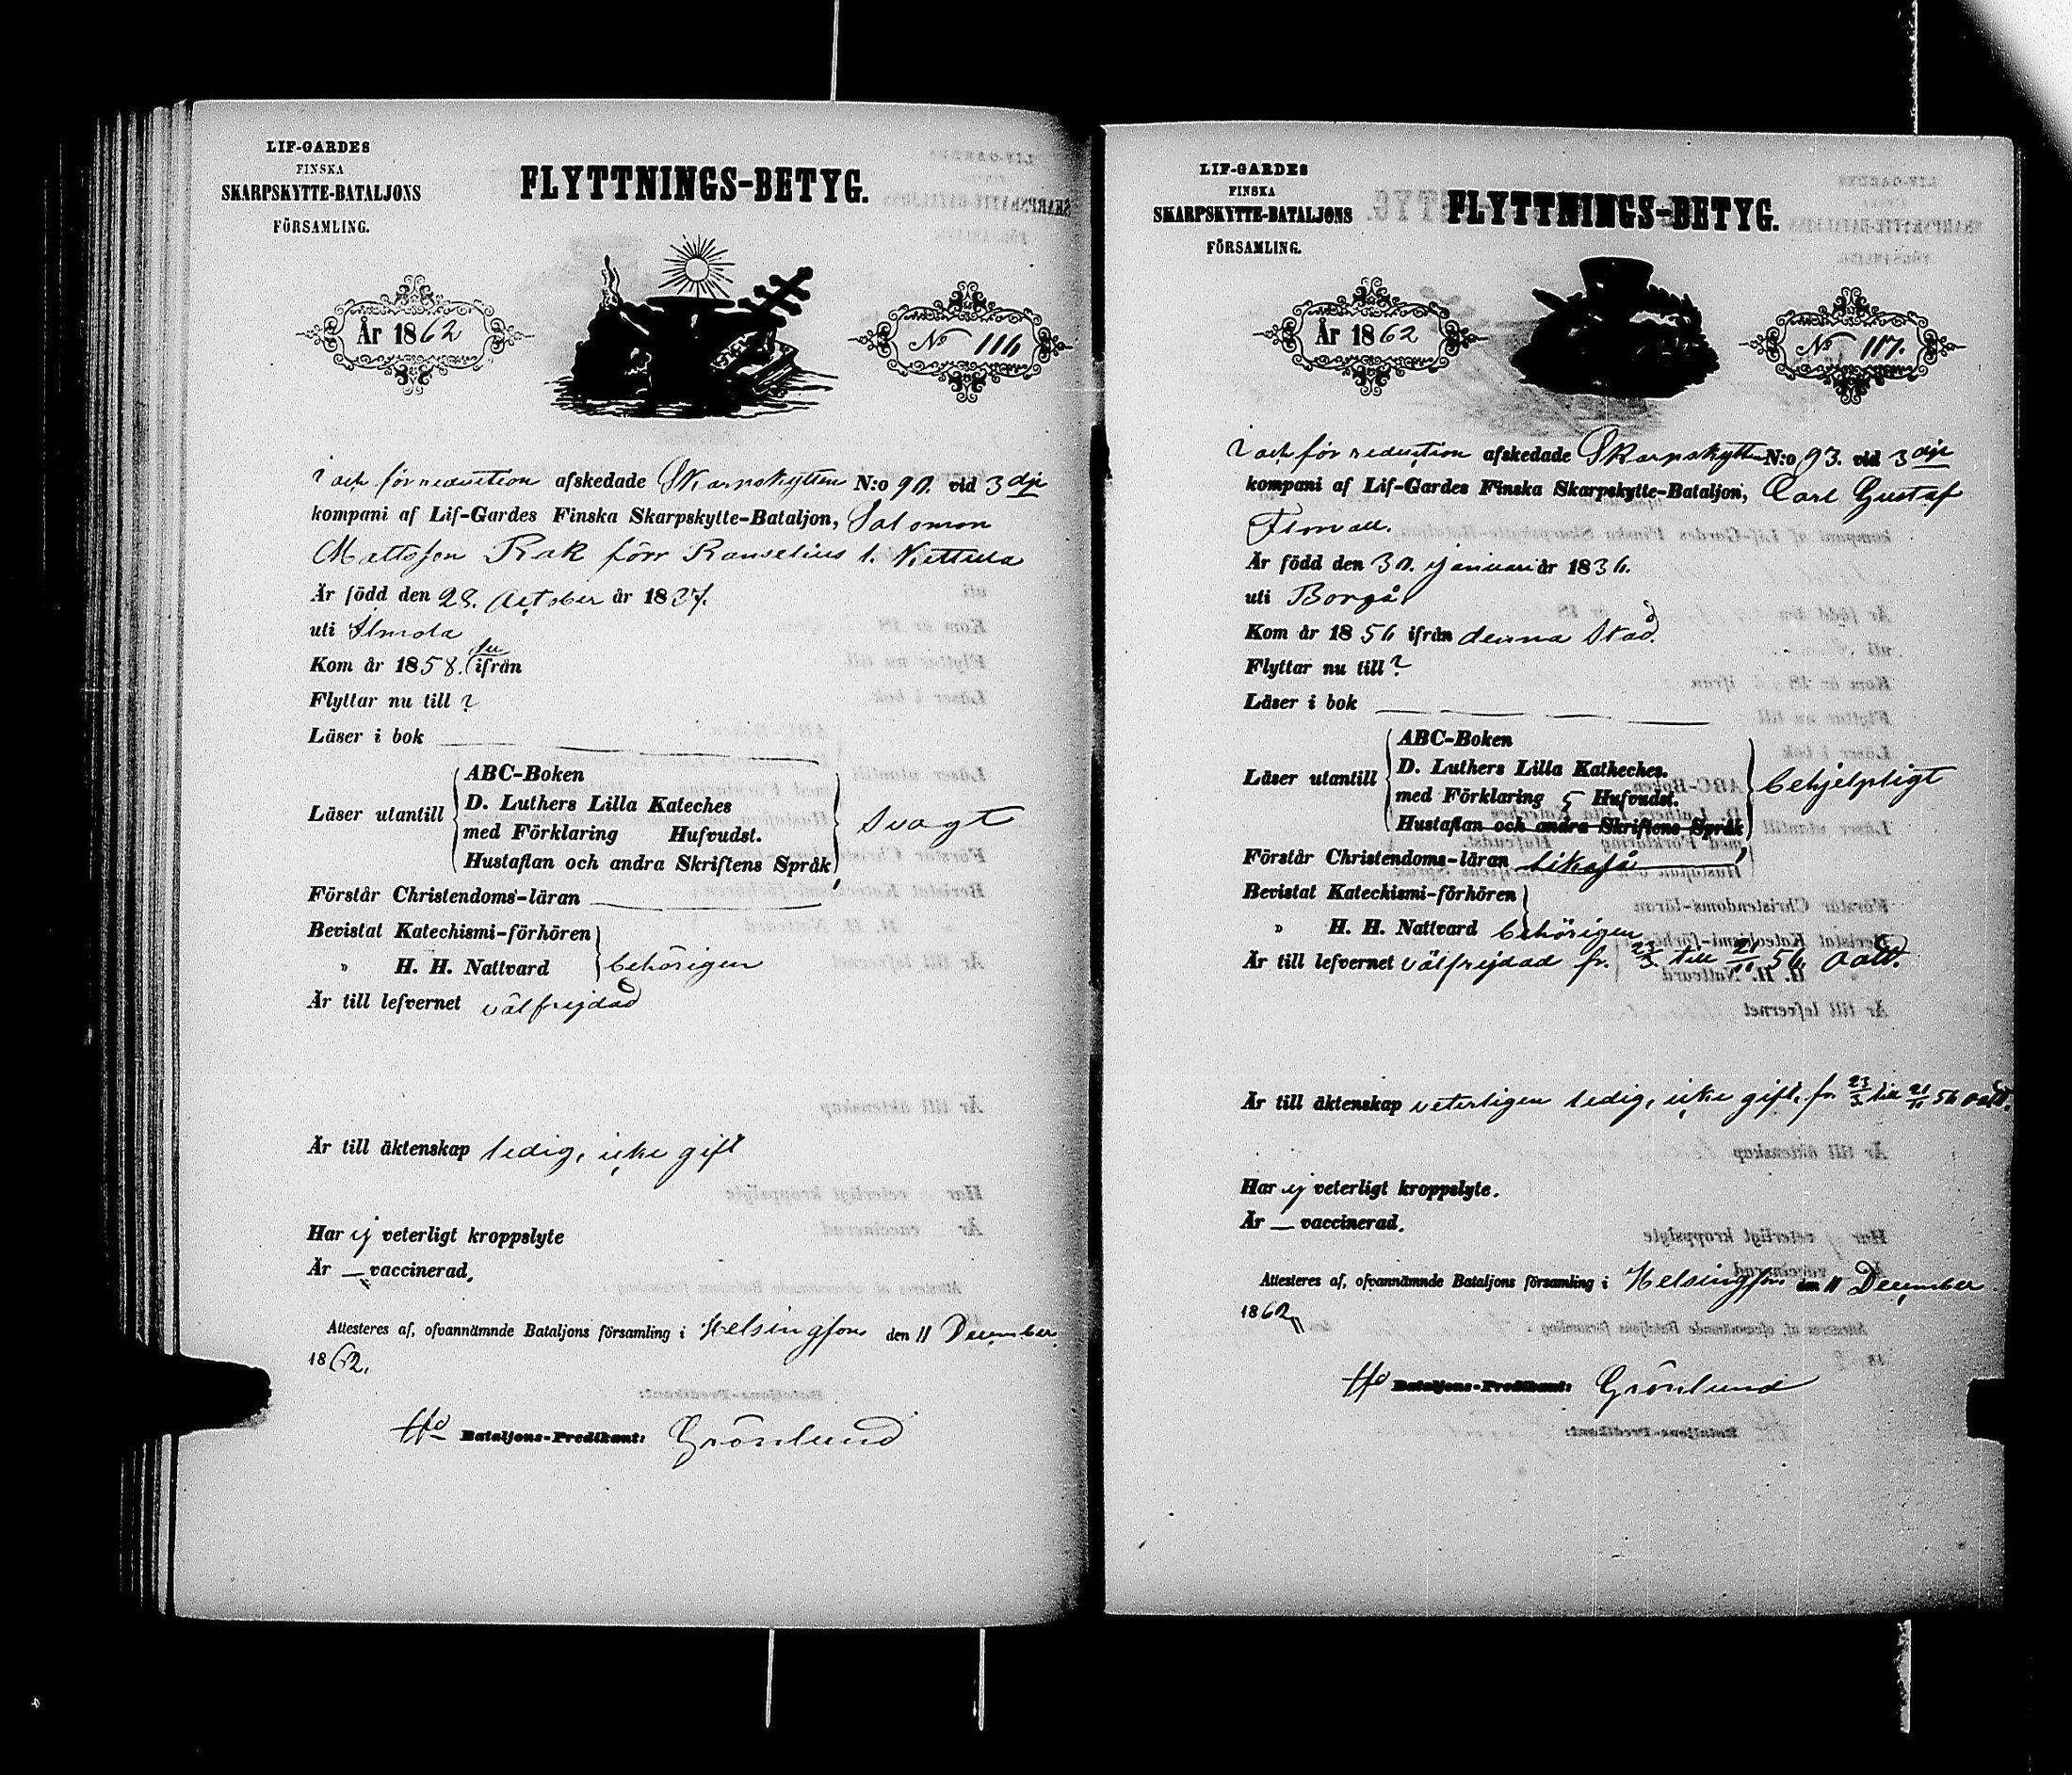 LIF-GARDES
FINSKA
SKARPSKYTTE-BATALJONS
FÖRSAMLING.
FLYTTNINGS-BETYG.
År 1862
No 116
i och för reduction afskedade Skarpskytten N:o 90. vid 3dje
kompani af Lif-Gardes Finska Skarpskytte-Bataljon, Salomon
Mattsson Rak förr
Är född den 28. October år 1837.
uti Ilmola
Kom år 1858. ifrån
Flyttar nu till ?
Läser i bok
Läser utantill
ABC-Boken
D. Luthers Lilla Kateches
med Förklaring Hufvudst.
Hustaflan och andra Skriftens Språk
svagt
Förstår Christendoms-läran
Bevistat Katechismi-förhören
" H. H. Nattvard behörigen
Är till lefvernet välfrejdad
Är till äktenskap ledig, icke gift
Har ej veterligt kroppslyte
Är — vaccinerad.
Attesteres af, ofvannämnde Bataljons församling i Helsingfors den 11 December
1862.
Bataljons-Predikant: Grönlund
LIF-GARDES
FINSKA
SKARPSKYTTE-BATALJONS
FÖRSAMLING.
FLYTTNINGS-BETYG.
År 1862
No 117.
i och för reduction afskedade Skarpskytten N:o 93. vid 3dje
kompani af Lif-Gardes Finska Skarpskytte-Bataljon, Carl Gustaf
Är född den 30. januari år 1836.
uti Borgå
Kom år 1856 ifrån denna Stad.
Flyttar nu till ?
Läser i bok
Läser utantill
ABC-Boken
D. Luthers Lilla Katheches.
med Förklaring 5 Hufvudst.
Hustaflan och andra Skriftens Språk
behjelpligt
Förstår Christendoms-läran likaså
Bevistat Katechismi-förhören
" H. H. Nattvard behörigen
Är till lefvernet välfrejdad fr. 23/3. till 21/11 56 oatt.
Är till äktenskap veterligen ledig, icke gift, fr 23/3. till 21/11 56 oatt.
Har ej veterligt kroppslyte.
Är — vaccinerad.
Attesteres af, ofvannämnde Bataljons församling i Helsingfors den 11 December
1862
Bataljons-Predikant: Grönlund